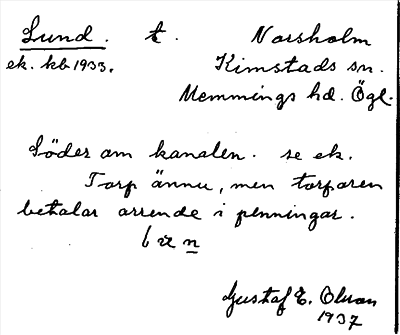 Lund. t. Norsholm
ek. kb 1933. Kimstads sn.
Memmings hd. Ögl.
Söder om kanalen. se ek.
Torp ännu, men torparen
betalar arrende i penningar.
Gustaf E.
1937